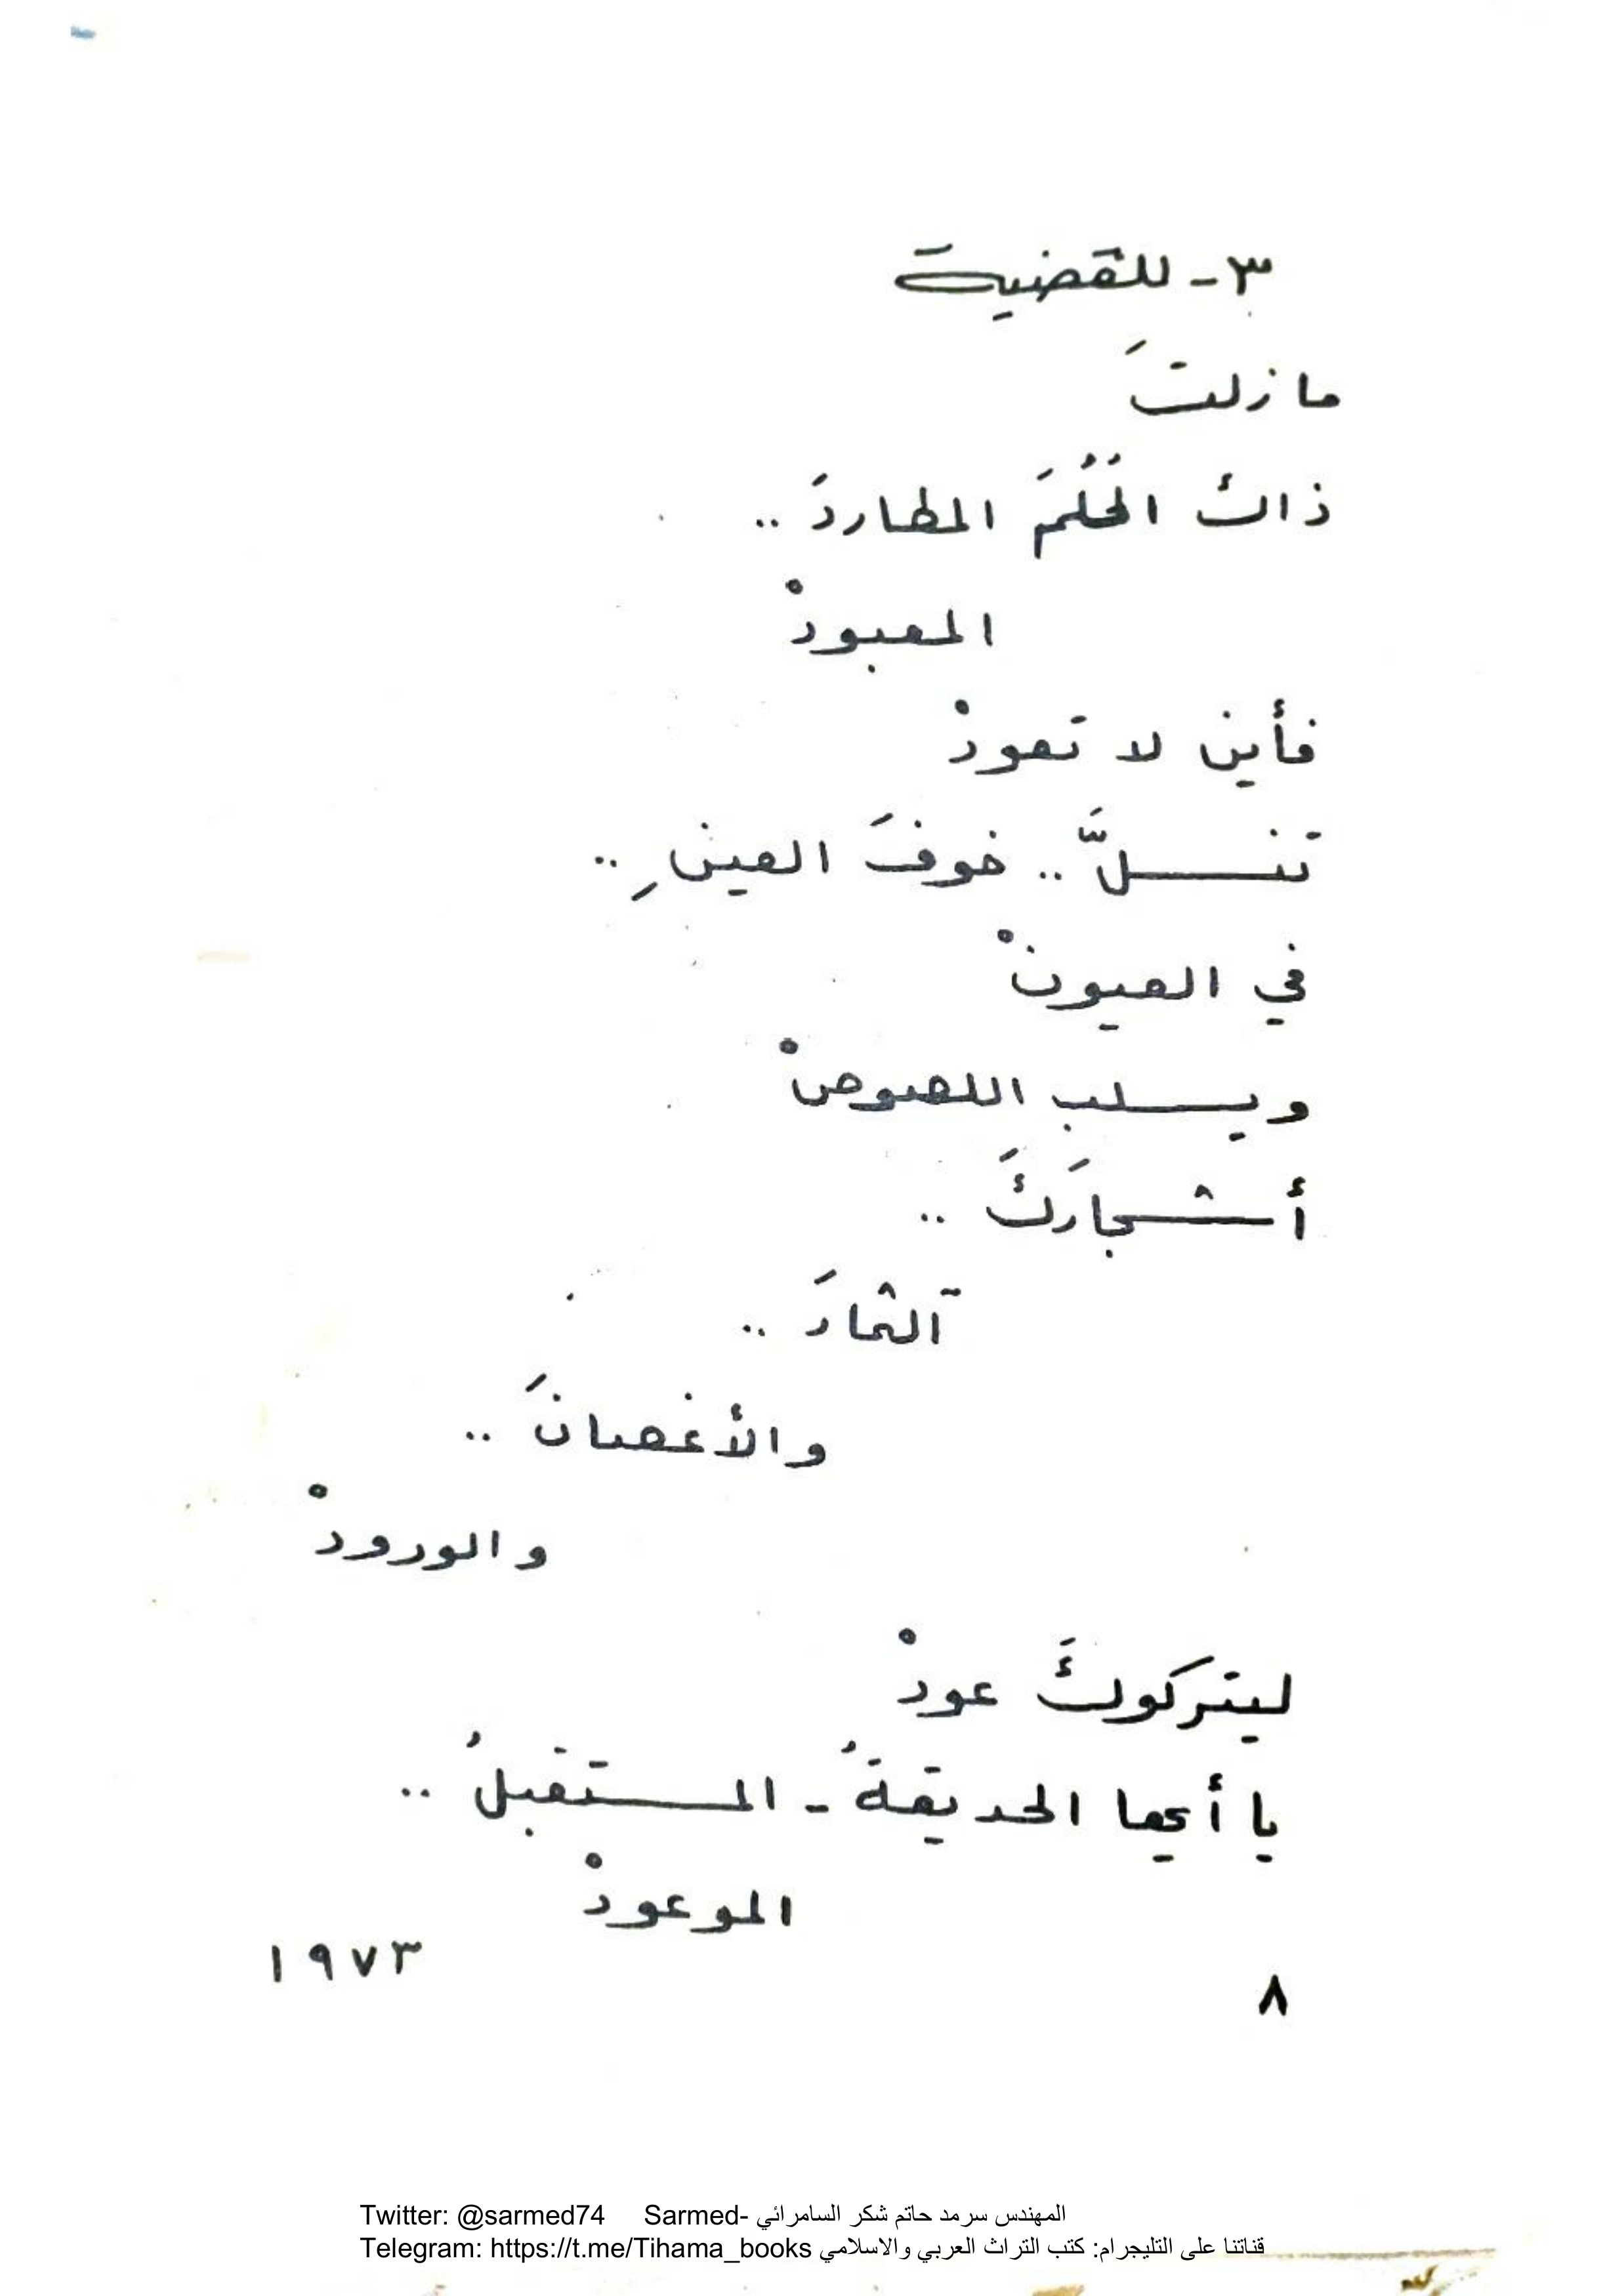 ٣- للقضية
ما زلتَ
ذاك الحُلُمَ المطاردَ ..
المعبودْ
فأين لا تعودْ
تنسلَّ .. خوفَ العينِ ..
في العيونْ
ويسلب اللصوصْ
أشجارَكَ ..
آلثمارَ ..
والأغصانَ ..
والورودْ
ليتركوكَ عودْ
يا أيها الحديقةُ - المستقبلُ ..
الموعودْ
١٩٧٣
٨
Twitter: @sarmed74 Sarmed- المهندس سرمد حاتم شكر السامرائي
Telegram: https://t.me/Tihama_books قناتنا على التليجرام: كتب التراث العربي والاسلامي